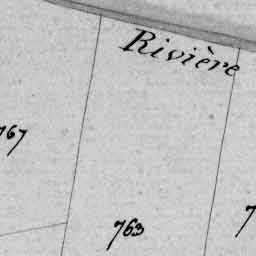 Rivière
767
763
7